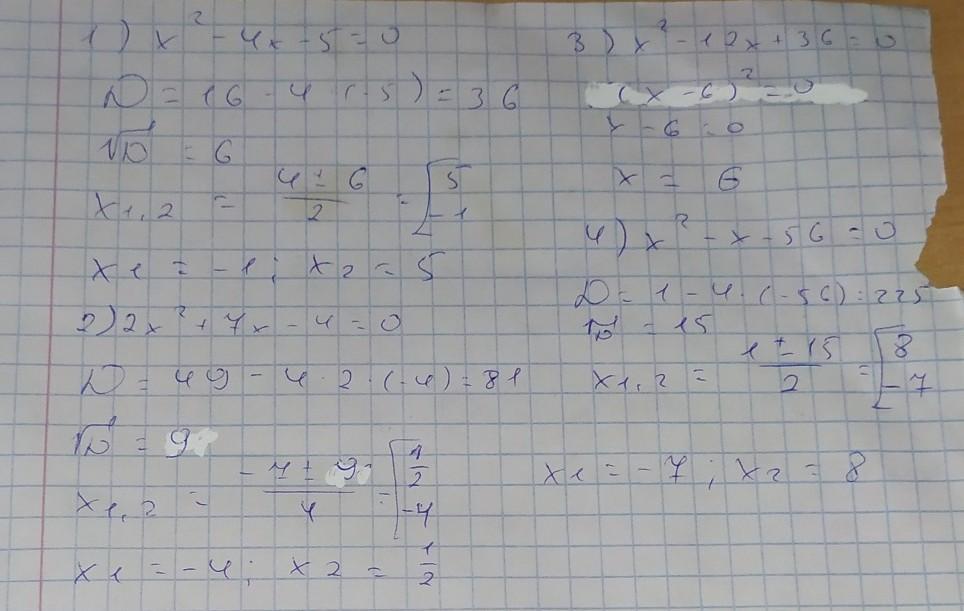 1) x² - 4x - 5 = 0
D = 16 - 4 · (-5) = 36
√D = 6
x1,2 = (4 ± 6)/2 = [5; -1
x1 = -1; x2 = 5
2) 2x² + 7x - 4 = 0
D = 49 - 4 · 2 · (-4) = 81
√D = 9
x1,2 = (-7 ± 9)/4 = [1/2; -4
x1 = -4; x2 = 1/2
3) x² - 12x + 36 = 0
(x - 6)² = 0
x - 6 = 0
x = 6
4) x² - x - 56 = 0
D = 1 - 4 · (-56) = 225
√D = 15
x1,2 = (1 ± 15)/2 = [8; -7
x1 = -7; x2 = 8